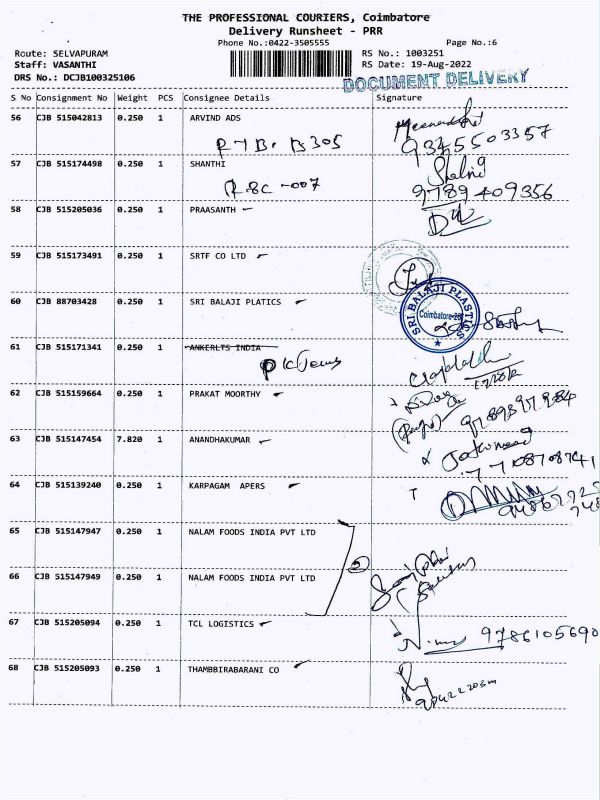 THE PROFESSIONAL COURIERS, Coimbatore
Delivery Runsheet - PRR
Phone No.:0422-3505555
Page No.:6
Route: SELVAPURAM
RS No.: 1003251
Staff: VASANTHI
RS Date: 19-Aug-2022
DRS No.: DCJB100325106
DOCUMENT DELIVERY
S No Consignment No Weight PCS Consignee Details Signature
56 CJB 515042813 0.250 1 ARVIND ADS
9345503357
57 CJB 515174498 0.250 1 SHANTHI
9789409356
58 CJB 515205036 0.250 1 PRAASANTH
59 CJB 515173491 0.250 1 SRTF CO LTD
60 CJB 88703428 0.250 1 SRI BALAJI PLATICS
SRI BALAJI PLASTICS
Coimbatore-26
61 CJB 515171341 0.250 1 ANKERLTS INDIA
62 CJB 515159664 0.250 1 PRAKAT MOORTHY
63 CJB 515147454 7.820 1 ANANDHAKUMAR
64 CJB 515139240 0.250 1 KARPAGAM APERS
65 CJB 515147947 0.250 1 NALAM FOODS INDIA PVT LTD
66 CJB 515147949 0.250 1 NALAM FOODS INDIA PVT LTD
67 CJB 515205094 0.250 1 TCL LOGISTICS
9786105690
68 CJB 515205093 0.250 1 THAMBBIRABARANI CO